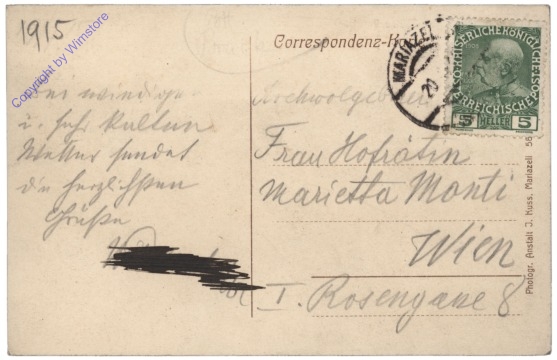 1915
Copyright by Wimstore
Correspondenz-Karte
MARIAZELL
20
KAISERLICHE KÖNIGLICHE
ÖSTERREICHISCHE
5 HELLER 5
Bei windigem
u. sehr kaltem
Wetter sendet
die herzlichsten
Grüße
Hochwolgeboren
Frau Hofrätin
Marietta Monti
Wien
I. Rosengasse 8
Photogr. Anstalt J. Kuss, Mariazell 56